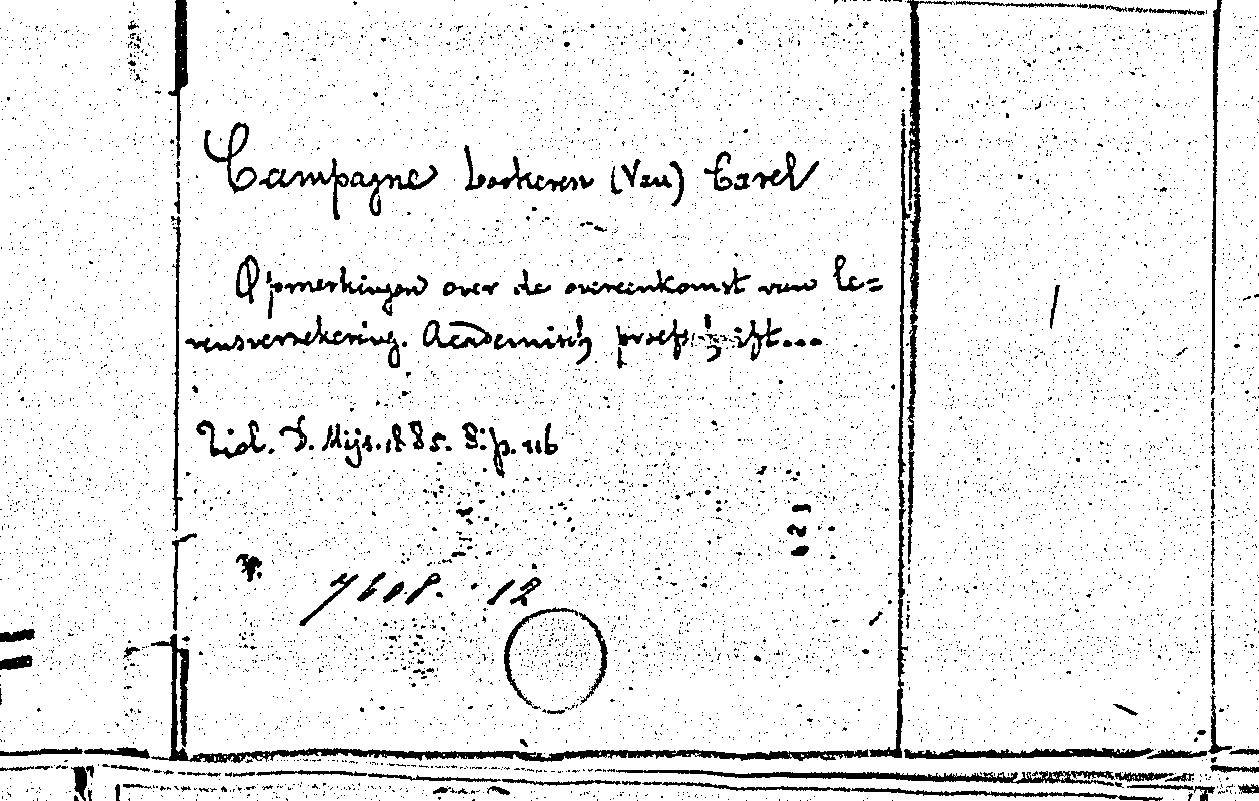 Campagne Lookeren (Van) Carel
Opmerkingen over de overeenkomst van le=
vensverzekering. Academisch proefschrift...
Tiel. D. Mijs. 1885. 8: p. 116
7608. 12